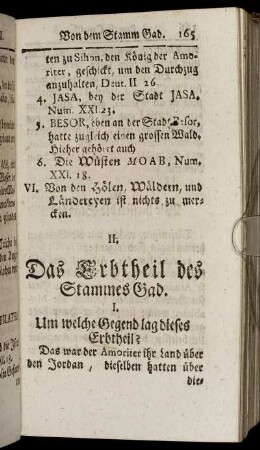 Von dem Stamm Gad. 165
ten zu Sihon, den König der Amo-
riter, geschickt, um den Durchzug
anzuhalten, Deut. II 26.
4. JASA, bey der Stadt JASA,
Num. XXI. 23.
5. BESOR, eben an der Stadt Besor,
hatte zugleich einen grossen Wald.
Hieher gehöret auch
6. Die Wüsten MOAB, Num.
XXI. 18.
VI. Von den Hölen, Wäldern, und
Ländereyen ist nichts zu mer-
cken.
II.
Das Erbtheil des
Stammes Gad.
I.
Um welche Gegend lag dieses
Erbtheil?
Das war der Amoriter ihr Land über
den Jordan, dieselben hatten über
die-